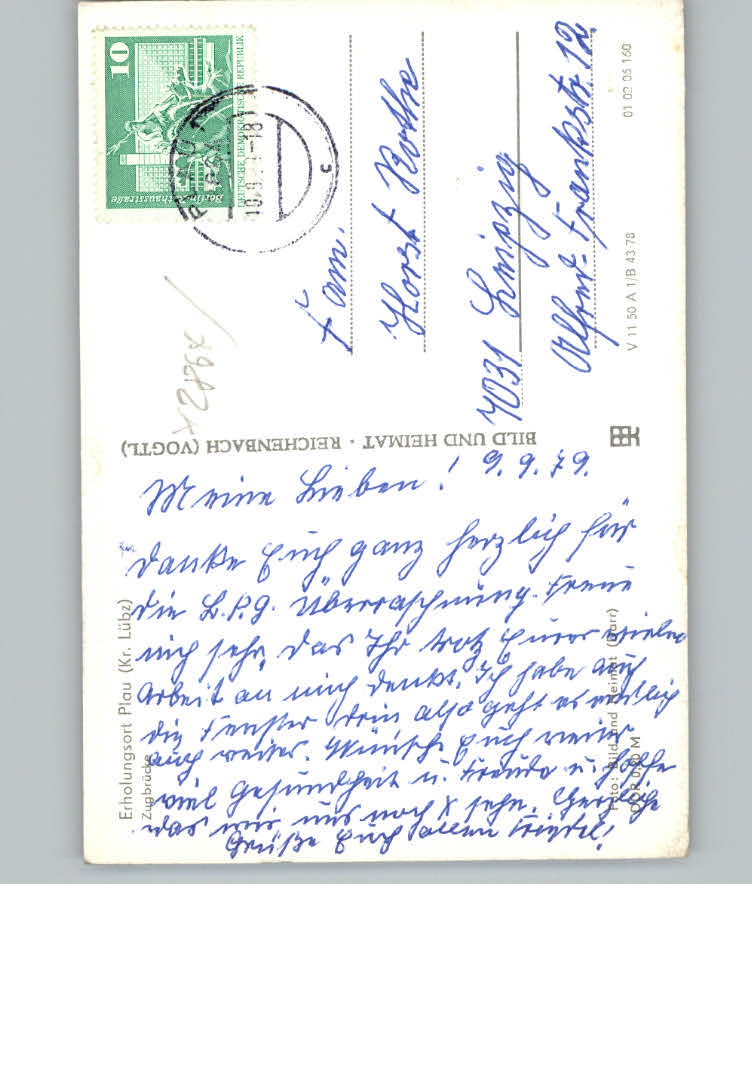 10
DEUTSCHE DEMOKRATISCHE REPUBLIK
Berlin, Rathausstraße
PLAU
c
Fam.
Horst Rothe
7031 Leipzig
Alfred-Frankstr. 12
01 02 05 160
V 11 50 A 1/B 43 78
x2868x
BILD UND HEIMAT · REICHENBACH (VOGTL)
Meine Lieben! 9.9.79.
Danke Euch ganz herzlich für
die L.P.G. Überraschnung. Freue
mich sehr, das Ihr trotz Eurer vielen
Arbeit an mich denkt. Ich habe auch
die Fenster drin also geht es endlich
auch weiter. Wünsche Euch weiter
viel Gesundheit u. Freude u. hoffe
das wir uns noch x sehn. Herzliche
Grüße Euch allen Friedel!
Erholungsort Plau (Kr. Lübz)
Zugbrücke
Foto: Bild und Heimat (Darr)
DDR 0,20 M